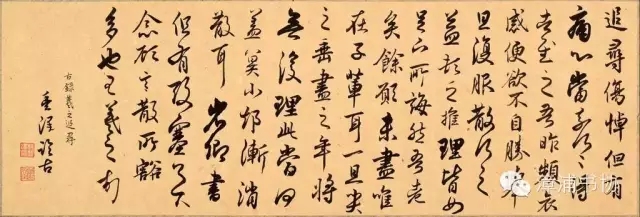 追尋傷悼但有
痛心當奈何奈何得
告慰之吾昨頻哀
感便欲不自勝舉
旦復服散行之
益頓乏推理皆如
足下所誨然吾老
矣餘願未盡唯
在子輩耳一旦哭
之垂盡之年將
無復理此當何
益冀小卻漸消
散耳省卿書
但有酸塞足下
念故言散所豁
多也王羲之頓
右錄羲之追尋
澤臨古
漳浦书协